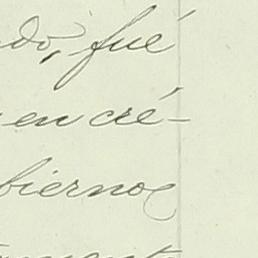 do, fué
en cré-
biernos